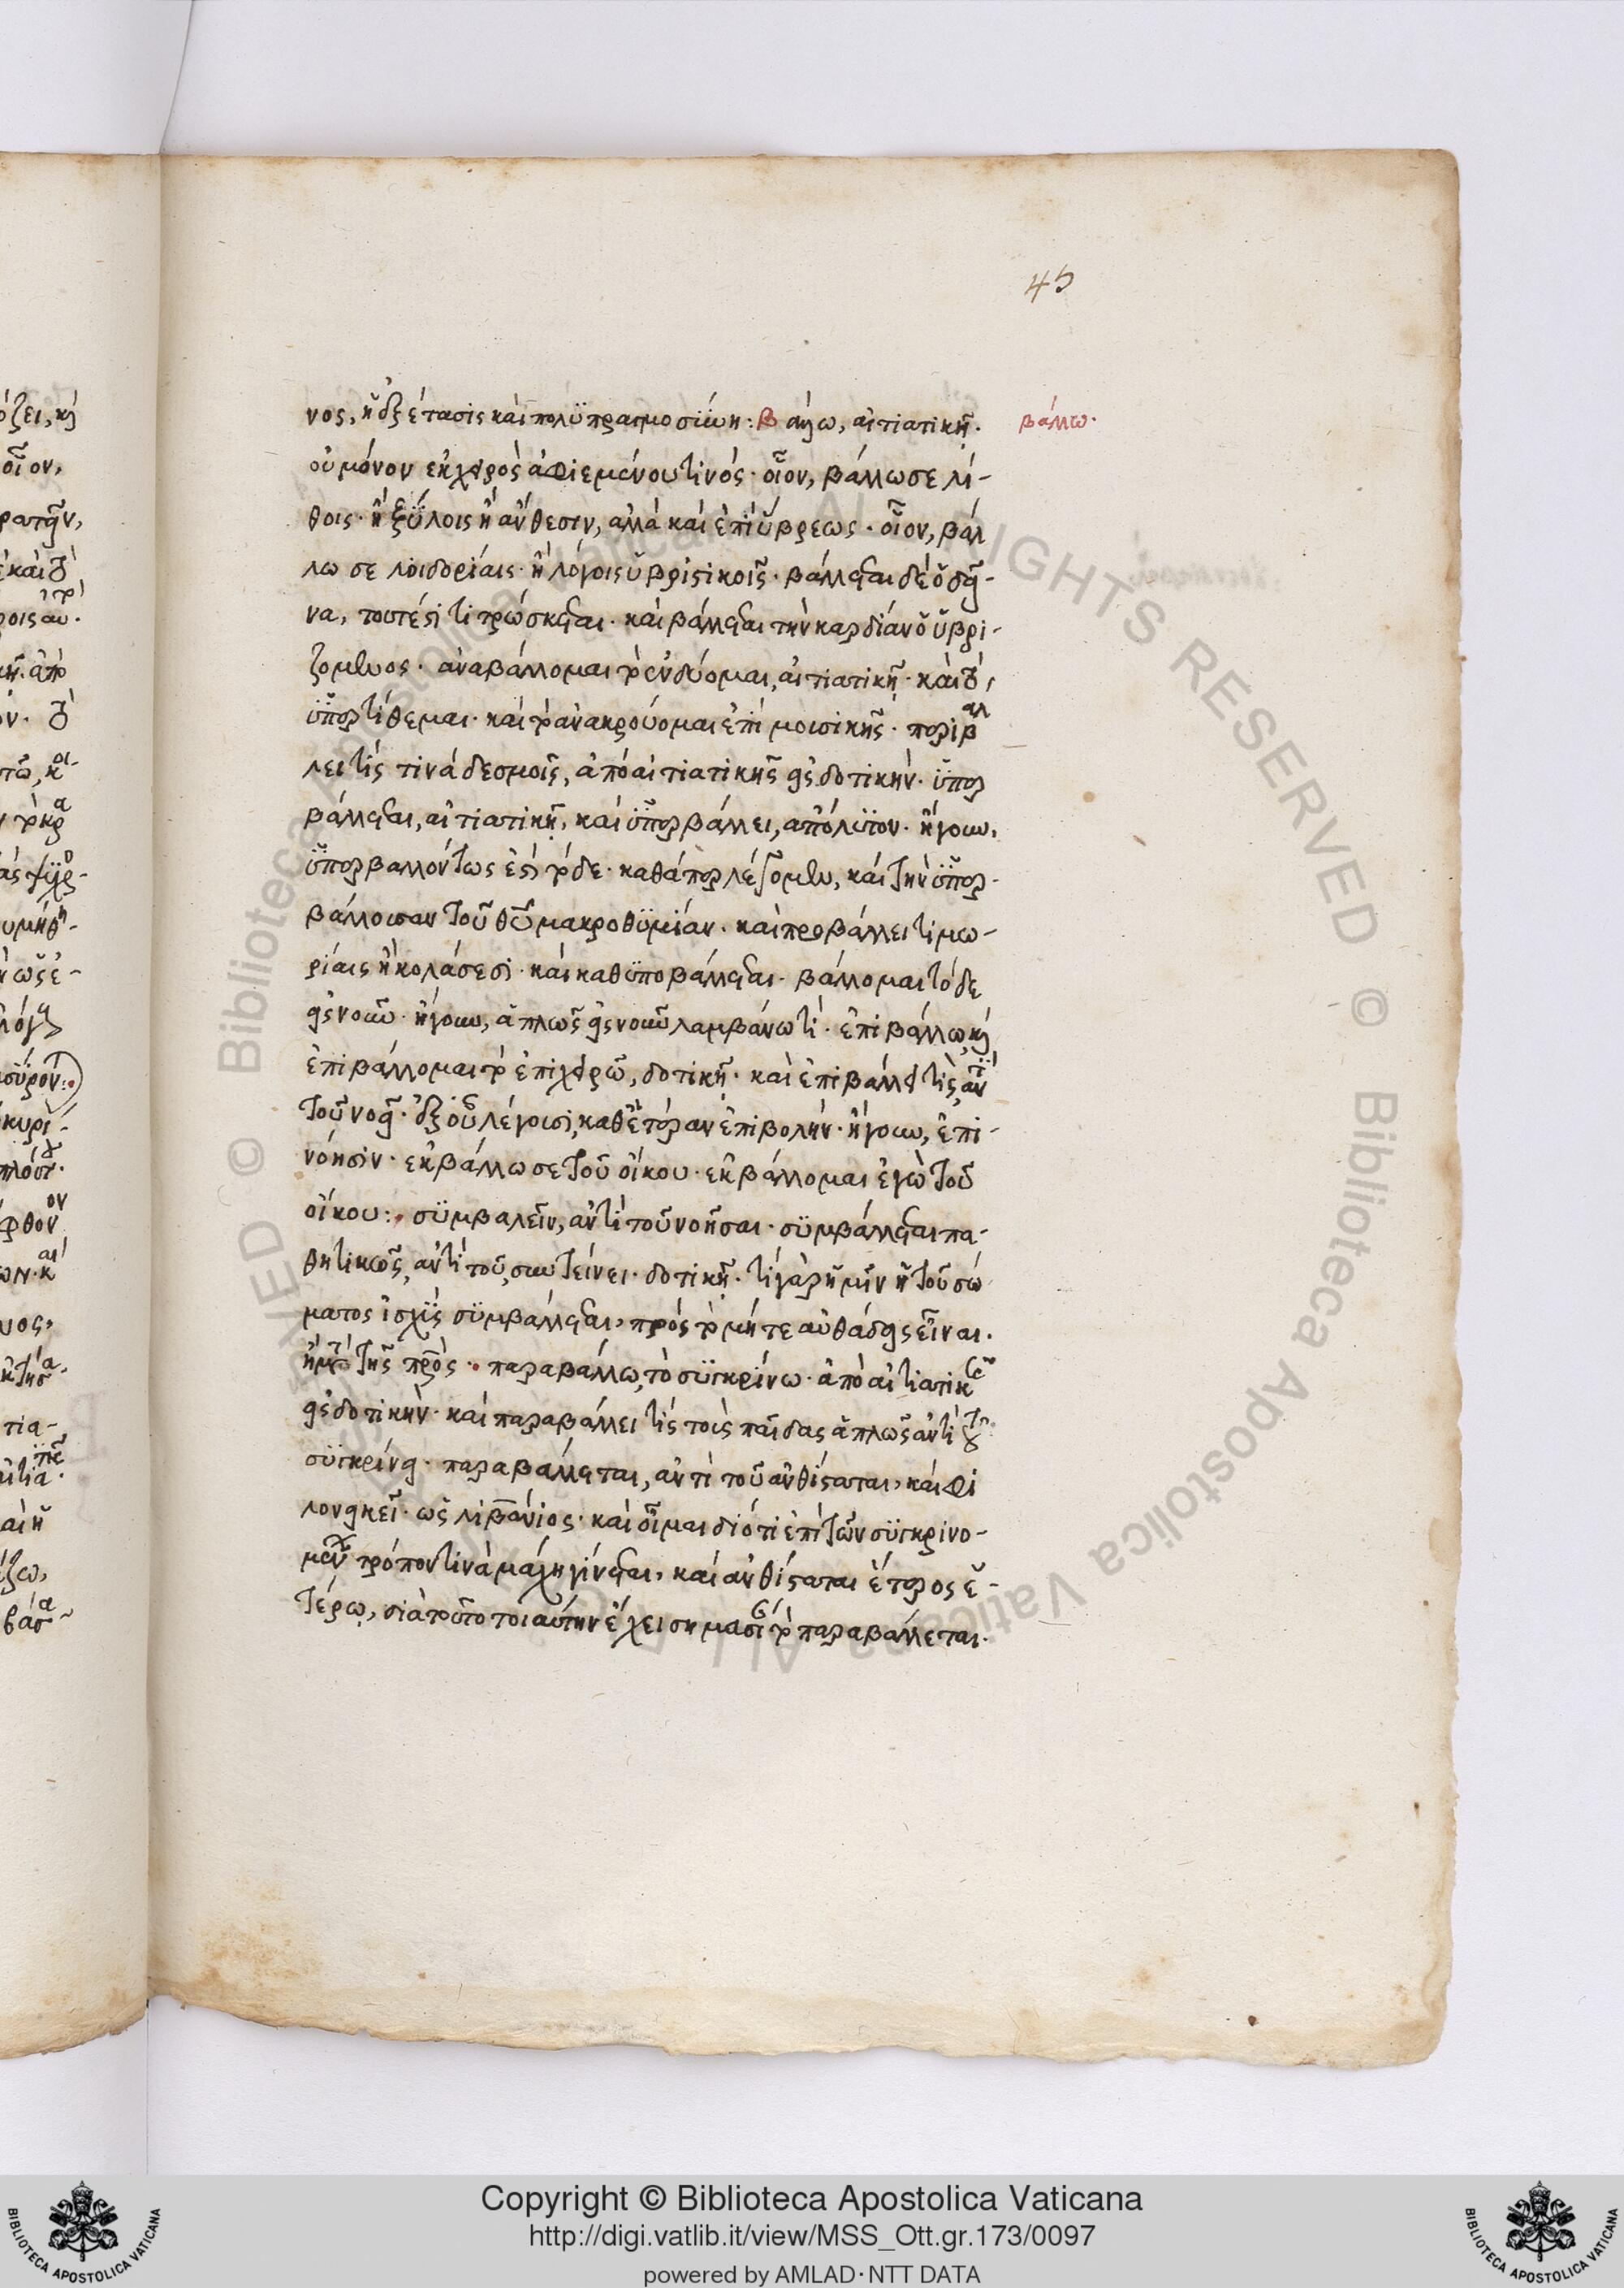 45
νος, ἡ ἐξέτασις καὶ πολυπραγμοσύνη: βάλλω, αἰτιατικῇ.
βάλλω.
οὐ μόνον ἐκ χειρὸς ἀφιεμένου τινός. οἷον, βάλλω σε λί-
θοις. ἢ ξύλοις ἢ ἄνθεσιν, ἀλλὰ καὶ ἐπὶ ὕβρεως. οἷον, βάλ
λω σε λοιδορίαις. ἢ λόγοις ὑβριστικοῖς. βάλλεται δὲ ὁ δεῖ-
να, τουτέστι τιτρώσκεται. καὶ βάλλεται τὴν καρδίαν ὁ ὑβρι-
ζόμενος. ἀναβάλλομαι τὸ ἐνδύομαι, αἰτιατικῇ. καὶ τὸ,
ὑπερτίθεμαι. καὶ τὸ ἀνακρούομαι ἐπὶ μουσικῆς. περιβάλ
λει τίς τινὰ δεσμοῖς, ἀπὸ αἰτιατικῆς εἰς δοτικήν. ὑπερ
βάλλεται, αἰτιατικῇ, καὶ ὑπερβάλλει, ἀπόλυτον. ἤγουν,
ὑπερβαλλόντως ἐστὶ τόδε. καθάπερ λέγομεν, καὶ τὴν ὑπερ-
βάλλουσαν τοῦ θεοῦ μακροθυμίαν. καὶ προβάλλει τιμω-
ρίαις ἢ κολάσεσι. καὶ καθυποβάλλεται. βάλλομαι τόδε
εἰς νοῦν. ἤγουν, ἁπλῶς εἰς νοῦν λαμβάνω τί. ἐπιβάλλω, καὶ
ἐπιβάλλομαι τὸ ἐπιχειρῶ, δοτικῇ. καὶ ἐπιβάλλει τίς, ἀντὶ
τοῦ νοεῖ. ἐξ οὗ λέγουσι, καθ' ἑτέραν ἐπιβολήν. ἤγουν, ἐπι-
νόησιν. ἐκβάλλω σε τοῦ οἴκου. ἐκβάλλομαι ἐγὼ τοῦ
οἴκου: συμβαλεῖν, ἀντὶ τοῦ νοῆσαι. συμβάλλεται πα-
θητικῶς, ἀντὶ τοῦ, συντείνει. δοτικῇ. τί γὰρ ἡμῖν ἡ τοῦ σώ
ματος ἰσχὺς συμβάλλεται, πρὸς τὸ μήτε αὐθάδεις εἶναι.
ἢ μετὰ τῆς πρός. παραβάλλω, τὸ συγκρίνω. ἀπὸ αἰτιατικῆς
εἰς δοτικήν. καὶ παραβάλλει τίς τοὺς παῖδας ἁπλῶς ἀντὶ τοῦ
συγκρίνει. παραβάλλεται, ἀντὶ τοῦ ἀνθίσταται, καὶ φι
λονεικεῖ. ὡς λιβάνιος. καὶ οἶμαι διότι ἐπὶ τῶν συγκρινο-
μένων τρόπον τινὰ μάχη γίνεται, καὶ ἀνθίσταται ἕτερος ἑ-
τέρῳ, διατοῦτο τοιαύτην ἔχει σημασίαν τὸ παραβάλλεται.
Copyright © Biblioteca Apostolica Vaticana
http://digi.vatlib.it/view/MSS_Ott.gr.173/0097
powered by AMLAD·NTT DATA